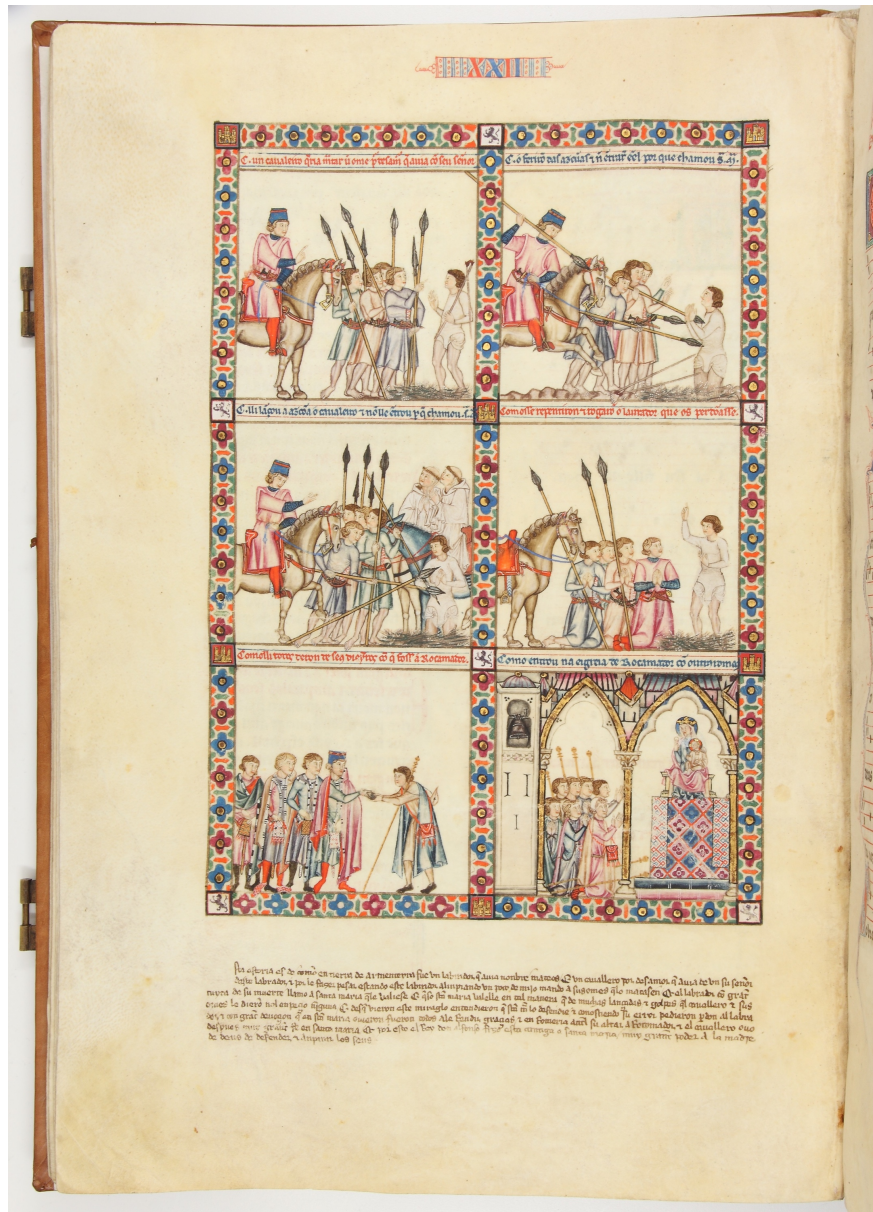 XXII
C. un cavaleiro q̄ria matar ũ ome p̄ desam̄ q̄ avia cō seu señor
C. o feriro das azcũas ⁊ ñ ētrar ēel por que chamou S. M.
C. lli lançou a azcõa o cavaleiro ⁊ nō lle ētrou p̄ q̄ chamou. S.
Como sse repentiron ⁊ rogarō o laurador que os perdōasse.
Como lli todos deron de seus dīos cō q̄ foss a Rocamador.
Como entrou na eigreia de Rocamador cō out romeus
Esta estoria es de como en tierra de Armenteyra fue un labrador q̄ avia nonbre mateos. E un cavallero por desamor q̄ avia de un su señor
deste labrador ⁊ por le fazer pesar estando este labrador alinpiando un poco de mijo mando a sus omes q̄ lo matasen E el labrador cō grāt
de su muerte llamo a santa maria q̄ le valiese E q̄so sta maria valelle en tal manera q̄ de muchas lançadas ⁊ golpes q̄l cavallero ⁊ sus
omes le dierō nol enpeçio ninguna E desq̄ vieron este miraglo entendieron q̄ sta m̄ lo defendie ⁊ conosciendo su error pedieron p̄don al labra
dor ⁊ con grāt devoçion q̄ en sta maria ovieron fueron todos a le rendir graçias ⁊ en romeria ant el su altar a Rocamador. ⁊ el cavallero ovo
despues muy grāt fe en santa maria E por esto el Rey don alfonso fizo esta cantiga o santa maria muy grant poder A la madre
de deus de defender ⁊ anparar los seus